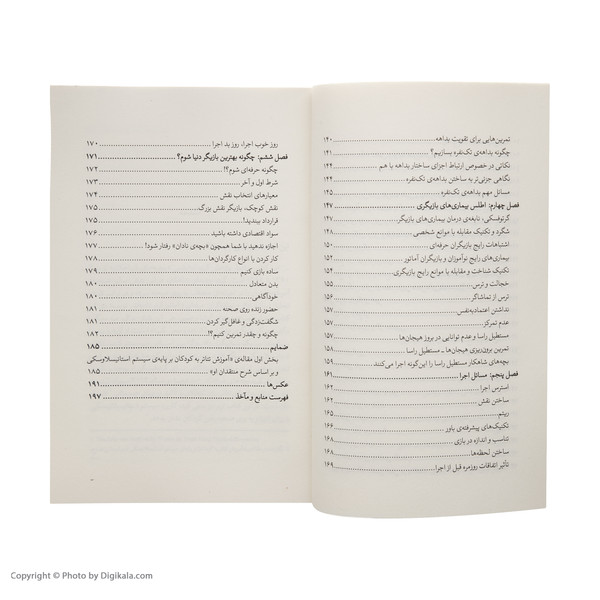 تمرین‌هایی برای تقویت بداهه ۱۴۰
چگونه بداهه‌ی تک‌نفره بسازیم؟ ۱۴۱
نکاتی در خصوص ارتباط اجزای ساختار بداهه با هم ۱۴۴
نگاهی جزئی‌تر به ساختن بداهه‌ی تک‌نفره ۱۴۴
مسائل مهم بداهه‌ی تک‌نفره ۱۴۶
فصل چهارم: اطلس بیماری‌های بازیگری ۱۴۷
گرتوفسکی، نابغه‌ی درمان بیماری‌های بازیگر ۱۴۷
شگرد و تکنیک مقابله با موانع شخصی ۱۴۸
اشتباهات رایج بازیگران حرفه‌ای ۱۵۰
بیماری‌های رایج نوآموزان و بازیگران آماتور ۱۵۲
تکنیک شناخت و مقابله با موانع رایج بازیگری ۱۵۴
خجالت و ترس ۱۵۵
ترس از تماشاگر ۱۵۶
نداشتن اعتمادبه‌نفس ۱۵۷
عدم تمرکز ۱۵۷
مستطیل راسا و عدم توانایی در بروز هیجان‌ها ۱۵۷
تمرین برون‌ریزی هیجان‌ها ـ مستطیل راسا ۱۵۸
بچه‌های شاهکار مستطیل راسا را این‌گونه اجرا می‌کنند ۱۵۹
فصل پنجم: مسائل اجرا ۱۶۱
استرس اجرا ۱۶۲
ساختن نقش ۱۶۲
ریتم ۱۶۵
تکنیک‌های پیشرفته‌ی باور ۱۶۶
تناسب و اندازه در بازی ۱۶۸
ساختن لحظه‌ها ۱۶۸
تأثیر اتفاقات روزمره قبل از اجرا ۱۶۹
روز خوب اجرا، روز بد اجرا ۱۷۰
فصل ششم: چگونه بهترین بازیگر دنیا شوم؟ ۱۷۱
چگونه حرفه‌ای شوم؟! ۱۷۲
شرط اول و آخر ۱۷۳
معیارهای انتخاب نقش ۱۷۴
نقش کوچک، بازیگر نقش بزرگ ۱۷۵
قرارداد ببندید! ۱۷۵
سواد اقتصادی داشته باشید ۱۷۶
اجازه ندهید با شما همچون «بچه‌ی نادان» رفتار شود! ۱۷۷
کار کردن با انواع کارگردان‌ها ۱۷۸
ساده بازی کنیم ۱۷۹
بدن متعادل ۱۸۰
خودآگاهی ۱۸۰
حضور زنده روی صحنه ۱۸۱
شگفت‌زدگی و غافل‌گیر کردن ۱۸۱
چگونه و چقدر تمرین کنیم؟! ۱۸۲
ضمایم ۱۸۵
بخش اول مقاله‌ی «آموزش تئاتر به کودکان بر پایه‌ی سیستم استانیسلاوسکی
و بر اساس شرح منتقدان او» ۱۸۵
عکس‌ها ۱۹۱
فهرست منابع و مآخذ ۱۹۷
Copyright © Photo by Digikala.com